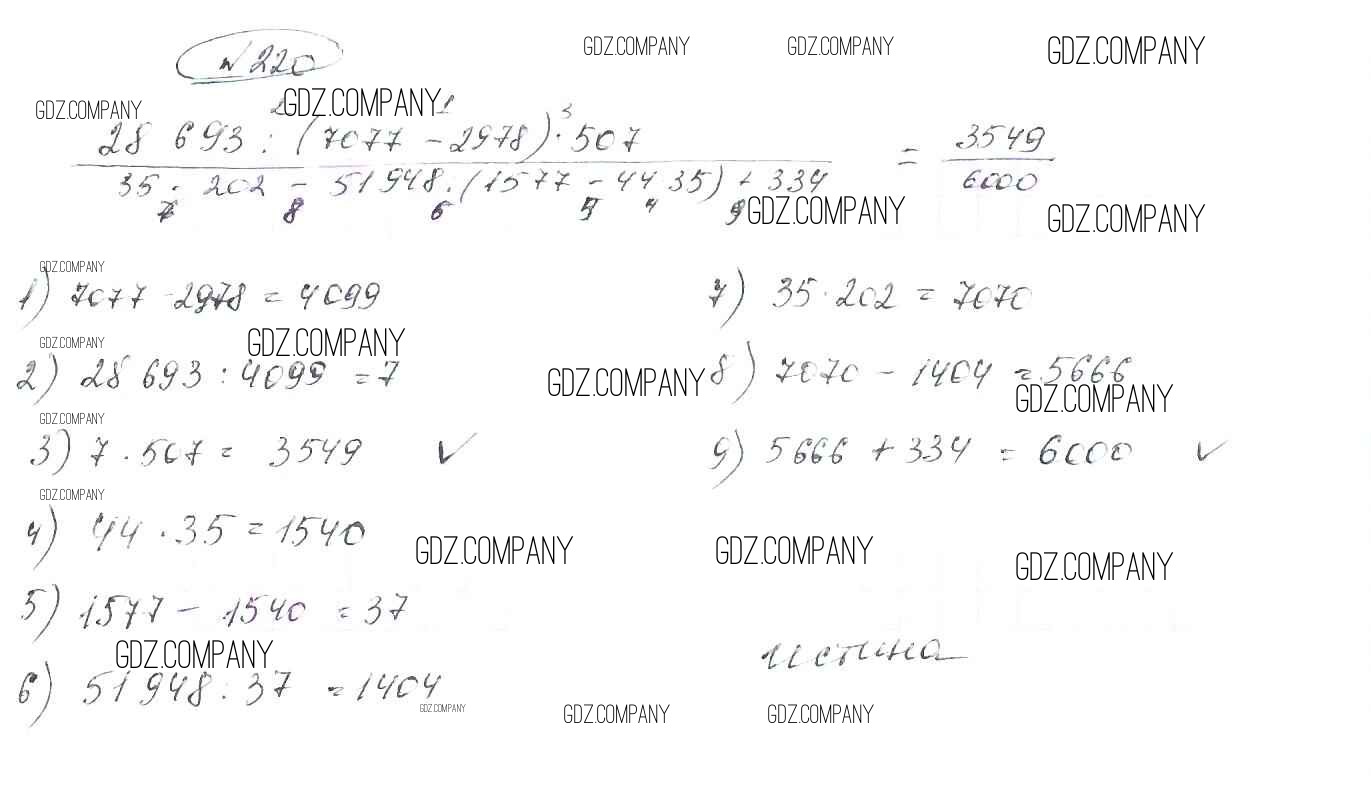 GDZ.COMPANY GDZ.COMPANY GDZ.COMPANY
№ 220
GDZ.COMPANY GDZ.COMPANY 1 3
28 693 : (7077 - 2978) · 507 = 3549
35 · 202 - 51948 : (1577 - 44 35) + 334 6000
7 8 6 5 4 9 GDZ.COMPANY GDZ.COMPANY
GDZ.COMPANY
1) 7077 - 2978 = 4099
7) 35 · 202 = 7070
GDZ.COMPANY GDZ.COMPANY
2) 28 693 : 4099 = 7
GDZ.COMPANY
8) 7070 - 1404 = 5666
GDZ.COMPANY
GDZ.COMPANY
3) 7 · 507 = 3549 ✓
9) 5666 + 334 = 6000 ✓
GDZ.COMPANY
4) 44 · 35 = 1540
GDZ.COMPANY GDZ.COMPANY GDZ.COMPANY
5) 1577 - 1540 = 37
GDZ.COMPANY
истина
6) 51948 : 37 = 1404
GDZ.COMPANY GDZ.COMPANY GDZ.COMPANY